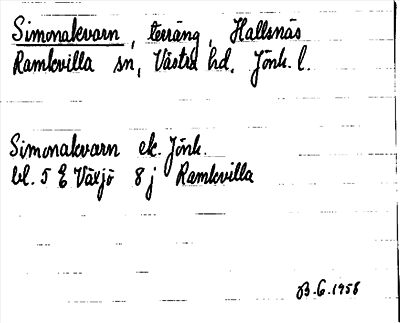 Simonakvarn, terräng, Hallsnäs
Ramkvilla sn, Västra hd. Jönk. l.
Simonakvarn ek. Jönk.
bl. 5 E Växjö 8 j Ramkvilla
B.G. 1958